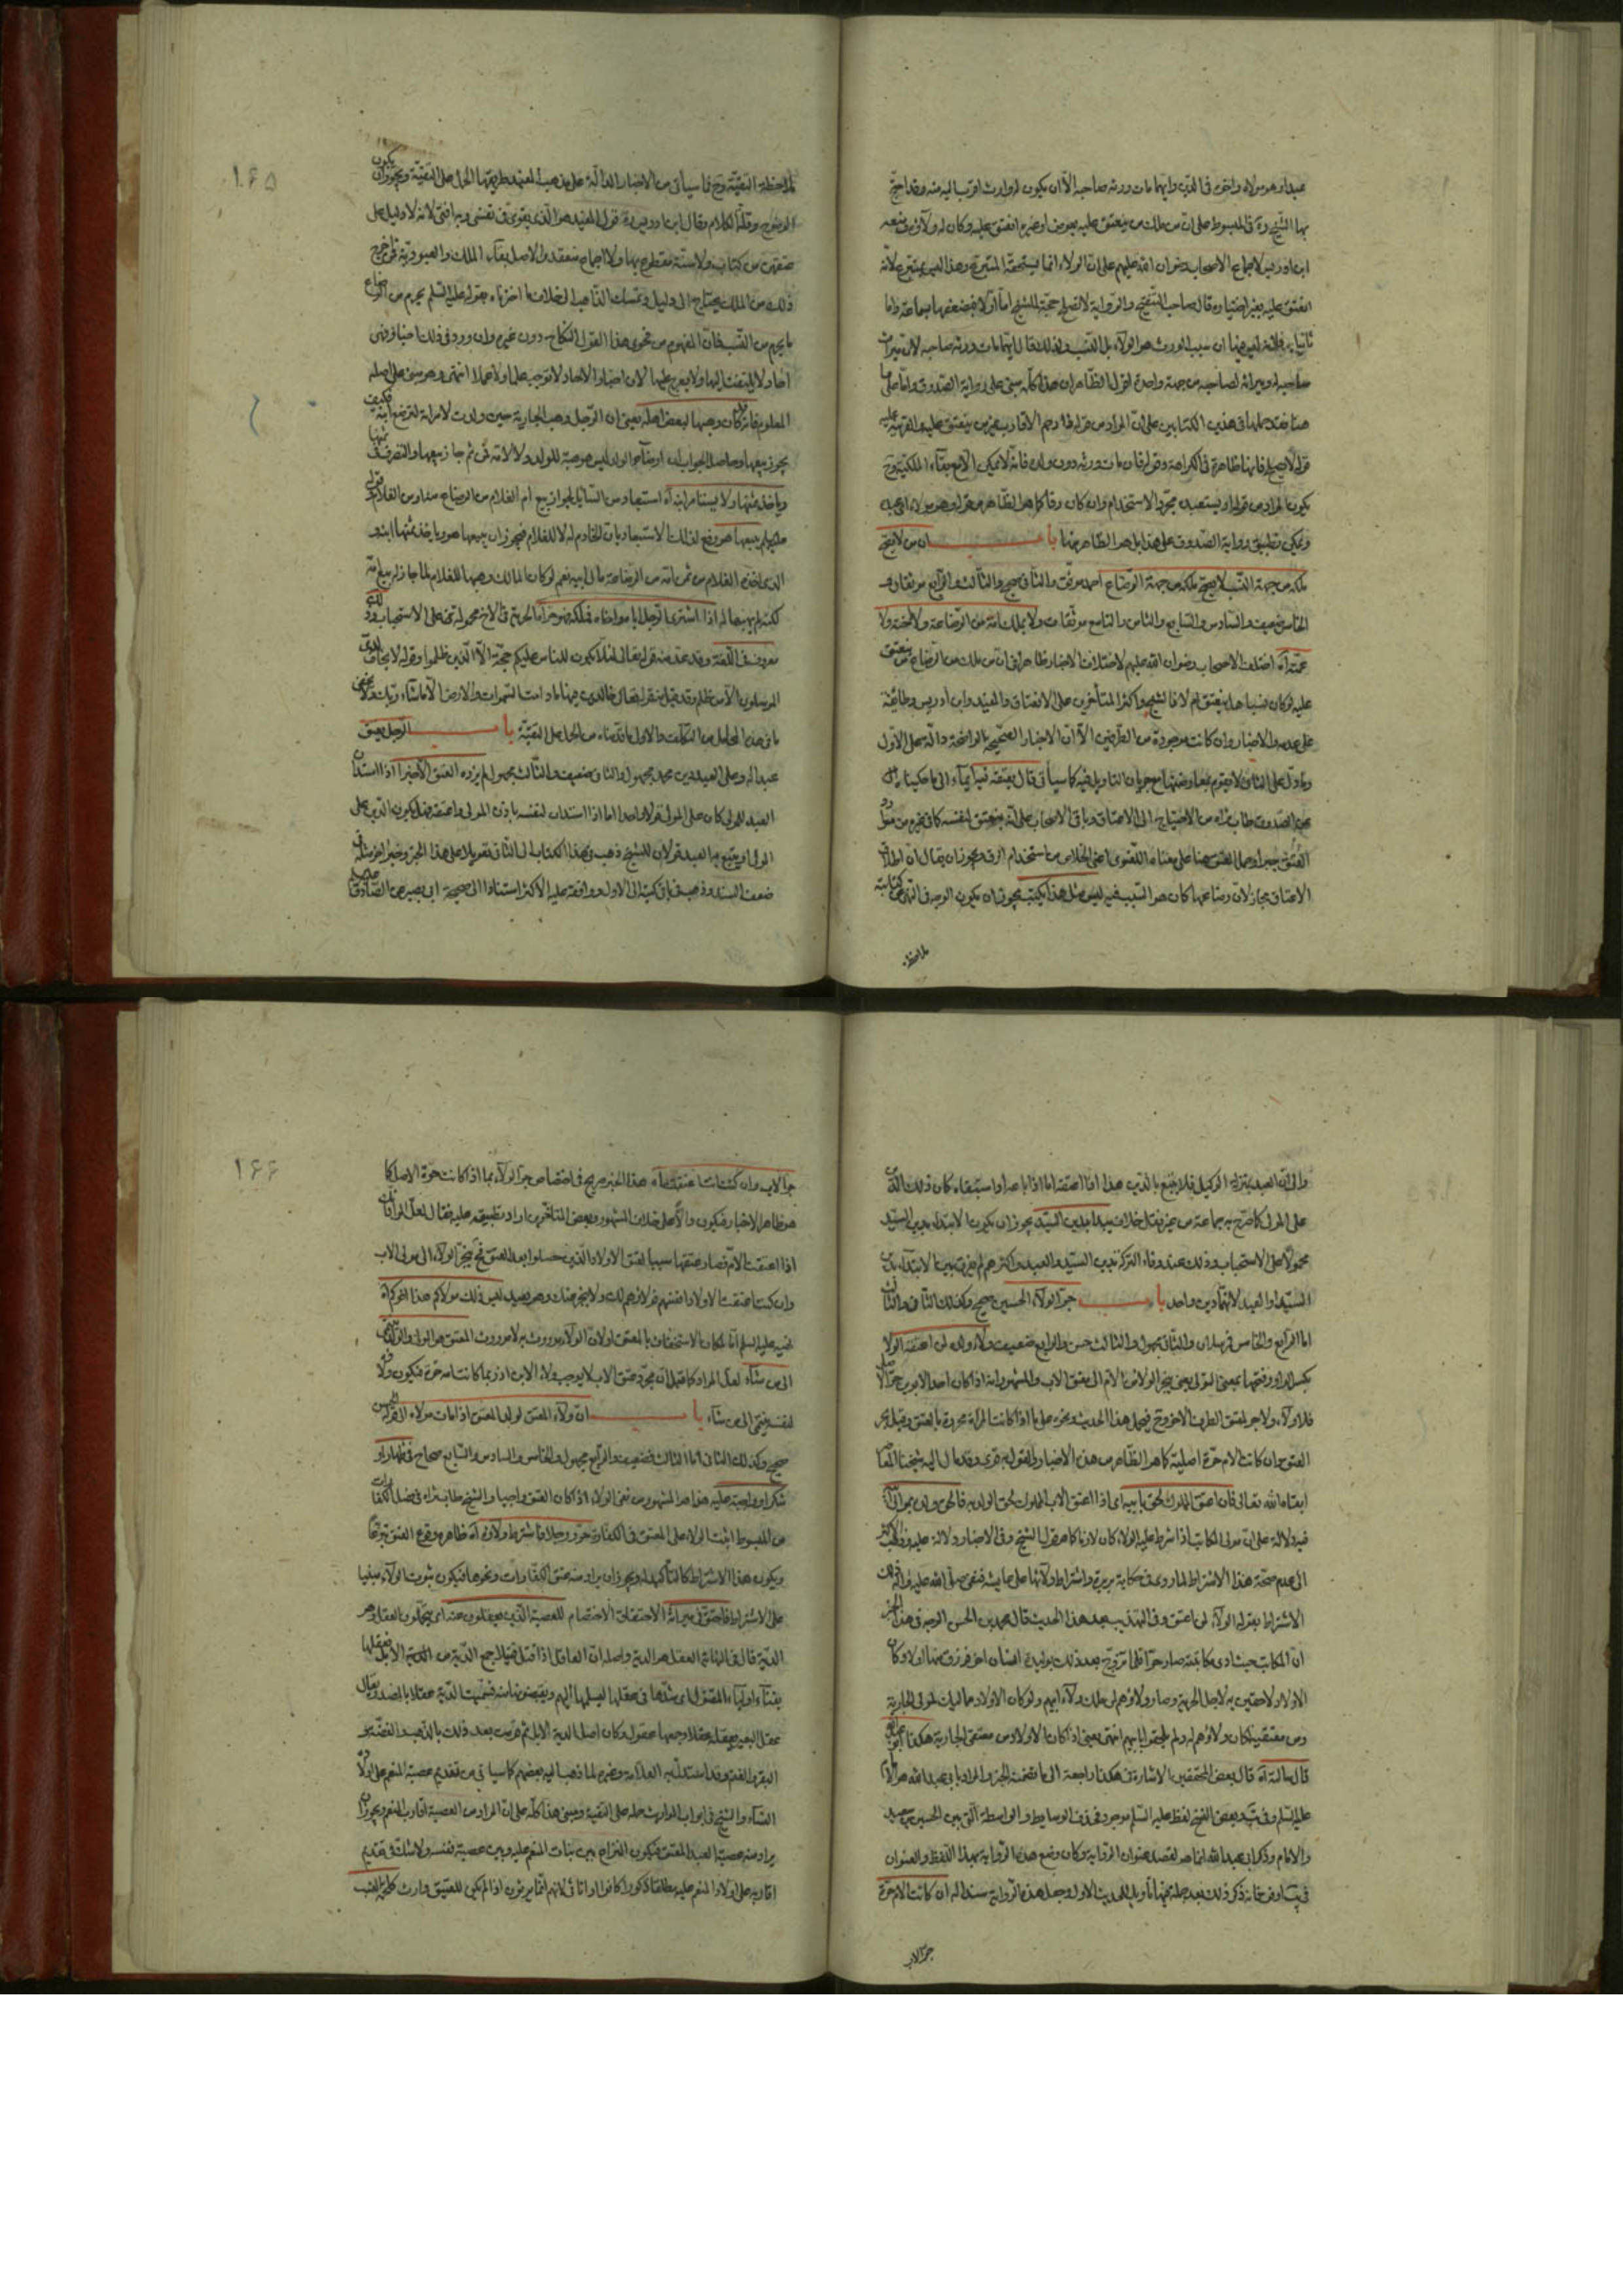 عبدا وهو مولاه واخوه فى الدين وايهما مات ورثه صاحبه الا ان يكون له وارث اقرب اليه منه وقد احتج
بها الشيخ ره فى المبسوط على ان من ملك من ينعتق عليه بعوض او بغيره انعتق عليه وكان له ولاؤه
ابن ادريس لاجماع الاصحاب رضوان الله عليهم على ان الولاء انما يستحقه المتبرع وهذا ليس بمتبرع لانه
انعتق عليه بغير اختياره قال صاحب التنقيح والرواية لا تصلح حجة للشيخ اما اولا فبضعفها بسماعة واما
ثانيا فلانه ليس فيها ان سبب الورث هو الولاء بل النسب ولذلك قال ايهما مات ورثه صاحبه لان ميراث
صاحبه له وميراثه لصاحبه من جهة واحدة اقول الظاهر ان هذا كله مبنى على رواية الصدوق واما على ما
هنا فقد حملها فى هذين الكتابين على ان المراد من قوله ذا رحم الاقارب غير من ينعتق عليه
قوله لا يصلح فانها ظاهرة فى الكراهة وقوله فان مات ورثه دون ولده فانه لا يمكن الا مع بقاء الملكية وح
يكون المراد من قوله او يستعبده مجرد الاستخدام وان كان رقا كما هو الظاهر من قوله وهو مولاه اى عبده
ويمكن تطبيق رواية الصدوق على هذا بل هو الظاهر منها باب ان من لا يصح
ملكه من جهة النسب لا يصح ملكه من جهة الرضاع احمد موثق والثانى صحيح والثالث والرابع موثقان و
الخامس ضعيف والسادس والسابع والثامن والتاسع موثقات ولا يملك امه من الرضاعة ولا اخته ولا
عمته اه اختلف الاصحاب رضوان الله عليهم لاختلاف الاخبار ظاهرا فى ان من ملك من الرضاع من ينعتق
عليه لو كان نسبا هل ينعتق ام لا فالشيخ واكثر المتأخرين على الانعتاق والمفيد وابن ادريس وطائفة
على عدمه والاخبار وان كانت موجودة من الطرفين الا ان الاخبار الصحيحة الواضحة دالة على الاول
وما دل على الثانى لا يقوم بمعارضتها مع جريان التاويل فيه كما سيأتى قال يعتقه فيه ايماء الى ما حكيناه
عن الصدوق طاب ثراه من الاحتياج الى الاعتاق وباقى الاصحاب على انه ينعتق لنفسه كما فى غيره من موارد
العتق جبرا وحملوا العتق هنا على معناه اللغوى اعنى الخلاص من استخدام الرق ويجوز ان يقال ان اطلاق
الاعتاق مجاز لان رضاعها كان هو السبب فيه ليس مثل هذا يكتب يجوز ان يكون الوجه فى النهى عن كتابته
لملاحظة
۱۶۵
لملاحظة التقية وح فما سيأتى من الاخبار الدالة على مذهب المفيد طريقها الحمل على التقية ويجوز ان يكون
الوضوح وقلة الكلام وقال ابن ادريس ره قول المفيد هو الذى يقوى فى نفسى وبه افتى لانه لا دليل على
عتقهن من كتاب ولا سنة مقطوع بها ولا اجماع منعقد والاصل بقاء الملك والعبودية فمن اخرج
ذلك من الملك يحتاج الى دليل وتمسك الذاهب الى خلاف ما اخترناه بقوله عليه السلم يحرم من الرضاع
ما يحرم من النسب فان المفهوم من فحوى هذا القول النكاح دون غيره وان ورد فى ذلك اخبار فهى
احاد لا يلتفت اليها ولا يعرج عليها لان اخبار الاحاد لا توجب علما ولا عملا انتهى وهو مبنى على اصله
المعلوم فانه كان وهبها لبعض اهله يعنى ان الرجل وهب الجارية حين ولدت لامراته لترضع ابنه فكيف
يجوز بيعها وحاصل الجواب ان ارضاعها الولد ليس هو هبة للولد ولا لامه فمن ثم جاز بيعها والتصرف فى ثمنها
وياخذ ثمنها ولا يستامر ابنه اه استبعاد من السائل لجواز بيع ام الغلام من الرضاع
يبيعها هو دفع لذلك الاستبعاد بان الخادم له لا للغلام فيجوز ان يبيعها هو وياخذ ثمنها ابنه و
الذى اخذه الغلام من ثمن امه من الرضاعة مال ابيه نعم لو كان المالك وهبها للغلام لما جاز له بيع امه
لكنه لم يهبها له اذا اشترى الرجل اباه واخاه فملكه فهو حر اما الحرية فى الاخ محمولة على الاستحباب
معروف فى اللغة وقد عد منه قوله تعالى لئلا يكون للناس عليكم حجة الا الذين ظلموا وقوله لا يخاف لدى
المرسلون الا من ظلم وقد قيل منه قوله تعالى خالدين فيها ما دامت السموات والارض الا ما شاء ربك ولا يخفى
ما فى هذه المحامل من التكلف والاولى ما قدمناه من الحمل على التقية باب الرجل يعتق
عبدا له وعلى العبد دين محمد مجهول والثانى ضعيف والثالث مجهول لم يزده العتق الا خيرا اذا استدان
العبد للمولى كان على المولى قولا واحدا اما اذا استدان لنفسه باذن المولى واعتقه فهل يكون الدين على
المولى او يتبع به العبد قولان للشيخ ذهب فى هذا الكتاب الى الثانى تعويلا على هذا الخبر وخبر اخر مثله فى
ضعف السند وذهب فى باقى كتبه الى الاول ووافقه عليه الاكثر استنادا الى صحيحة ابى بصير عن الصادق
والى ان العبد بمنزلة الوكيل فلا يتبع بالدين هذا اذا اعتقه اما اذا باعه او استبقاه كان ذلك الدين
على المولى كما صرح به جماعة من غير نقل خلاف يبدا بدين السيد يجوز ان يكون الابتداء بدين السيد
محمولا على الاستحباب وذلك عند وفاء التركة بدين السيد والعبد واكثرهم لم يفرق بين الابتداء بدين
السيد او العبد لانهما دين واحد باب جر الولاء الحسين صحيح وكذلك الثانى والثالث
اما الرابع والخامس فمرسلان والثانى مجهول والثالث حسن والرابع ضعيف ولاء ولده لمن اعتقه الولاء
بكسر الواو وفتحها بمعنى المولى يعنى ينجر الولاء من مولى الام الى معتق الاب والمشهور انه اذا كان احد الابوين حر الاصل
فلا ولاء ولا جر لمعتق الطرف الاخر وح فيحمل هذا الحديث ونحوه على ما اذا كانت المرأة محررة بالعتق وقيل بجر
العتق وان كانت الام حرة اصلية كما هو الظاهر من هذه الاخبار والقول به قوى وقد مال اليه شيخنا المعاصر
ابقاه الله تعالى فان اعتق المملوك لحق بابيه اى اذا اعتق الاب المملوك لحق الولد به
فيه دلالة على ان مولى المكاتب اذا شرط عليه الولاء كان لازما كما هو قول الشيخ وفى الاخبار دلالة عليه وذهب الاكثر
الى عدم صحة هذا الاشتراط لما روى فى حكاية بريرة واشتراط ولائها على عايشة فنفى صلى الله عليه واله ذلك
الاشتراط بقوله الولاء لمن اعتق وفى التهذيب بعد هذا الحديث قال محمد بن الحسن الوجه فى هذا الخبر
ان المكاتب حيث ادى مكاتبته صار حرا فلما تزوج بعد ذلك بوليدة انسان اخر فرزق منها اولادا كان
الاولاد لاحقين به لاجل الحرية وصار ولاؤهم لمن ملك ولاء ابيهم ولو كان الاولاد مماليك لمولى الجارية
ومن معتقيه لكان ولاؤهم له ولم يلحقوا بابيهم انتهى يعنى اذا كان الاولاد من معتقى الجارية هكذا ابو عبد الله
قال سألته اه قال بعض المحققين الاشارة فى هكذا راجعة الى ما تضمنه الخبر والمراد بابى عبد الله هو الامام
عليه السلم وفى يب وبعض النسخ لفظ عليه السلم موجود فى حذف الوسايط والواسطة التى بين الحسين بن سعيد
والامام وذكر ابى عبد الله انما هو لقصد عنوان الرواية وكان وضع هذه الرواية بهذا اللفظ والعنوان
فى يب اوفق فانه ذكر ذلك بعد جملة فيها تأويل للحديث الاول وجعل هذه الرواية سندا له ان كانت الام حرة
جر الاب
۱۶۶
جر الاب وان كنت انت اعتقت اه هذا الخبر صريح فى اختصاص جر الولاء بما اذا كانت حرة الاصل كما
هو ظاهر الاخبار فيكون دالا على خلاف المشهور وبعض المتاخرين اراد تطبيقه عليه فقال لعل المراد انك
اذا اعتقت الام فصار عتقها سببا لعتق الاولاد الذين حصلوا بعد العتق فح ينجر الولاء الى مولى الاب
وان كنت اعتقت الاولاد انفسهم فولاؤهم لك ولا ينجر عنك وهو بعيد ليس ذلك مولاكم هذا اخوكم اه
نفيه عليه السلم اما لمكان الاستخفاف بالمعتق او لان الولاء موروث به لا موروث المعتق هو المولى
الى من شاء لعل المراد كما قيل ان مجرد عتق الاب لا يوجب ولاء الابن اذ ربما كانت امه حرة فيكون ولاء
لنفسه فينتمى الى من شاء باب ان ولاء المعتق لولد المعتق اذا مات مولاه الحسين
صحيح وكذلك الثانى اما الثالث فضعيف والرابع مجهول والخامس والسادس والسابع صحاح
شكرا او واجبة عليه هذا هو المشهور من نفى الولاء اذا كان العتق واجبا والشيخ طاب ثراه فى فصل الكفارات
من المبسوط اثبت الولاء على المعتق فى الكفارة
ويكون هذا الاشتراط كالتأكيد له ويجوز ان يراد منه عتق الكفارات ونحوها فيكون ثبوت الولاء مبنيا
على الاشتراط فاحتق فى ميراثه الاحتقاق الاختصام للعصبة الذين يعقلون عنه اى يتحملون العقل وهو
الدية قال فى النهاية العقل هو الدية واصله ان القاتل اذا قتل قتيلا جمع الدية من الابل فعقلها
بفناء اولياء المقتول اى شدها فى عقلها ليسلمها اليهم ويقبضونها منه فسميت الدية عقلا بالمصدر يقال
عقل البعير يعقله عقلا وجمعها عقول وكان اصل الدية الابل ثم قومت بعد ذلك بالذهب والفضة و
البقر والغنم وقد استدل به العلامة وغيره لما ذهب اليه بعضهم كما سيأتى من تقديم عصبة المنعم على اولاد
النساء والشيخ فى ابواب المواريث حمله على التقية ومبنى هذا كله على ان المراد من العصبة اقارب المنعم ويجوز ان
يراد منه عصبة العبد المعتق فيكون النزاع بين بنات المنعم عليه وبين عصبة نفسه ولا شك فى تقديم
اقاربه على اولاد المنعم عليه مطلقا ذكورا كانوا او اناثا لانهم انما يرثون اذا لم يكن للعتيق وارث